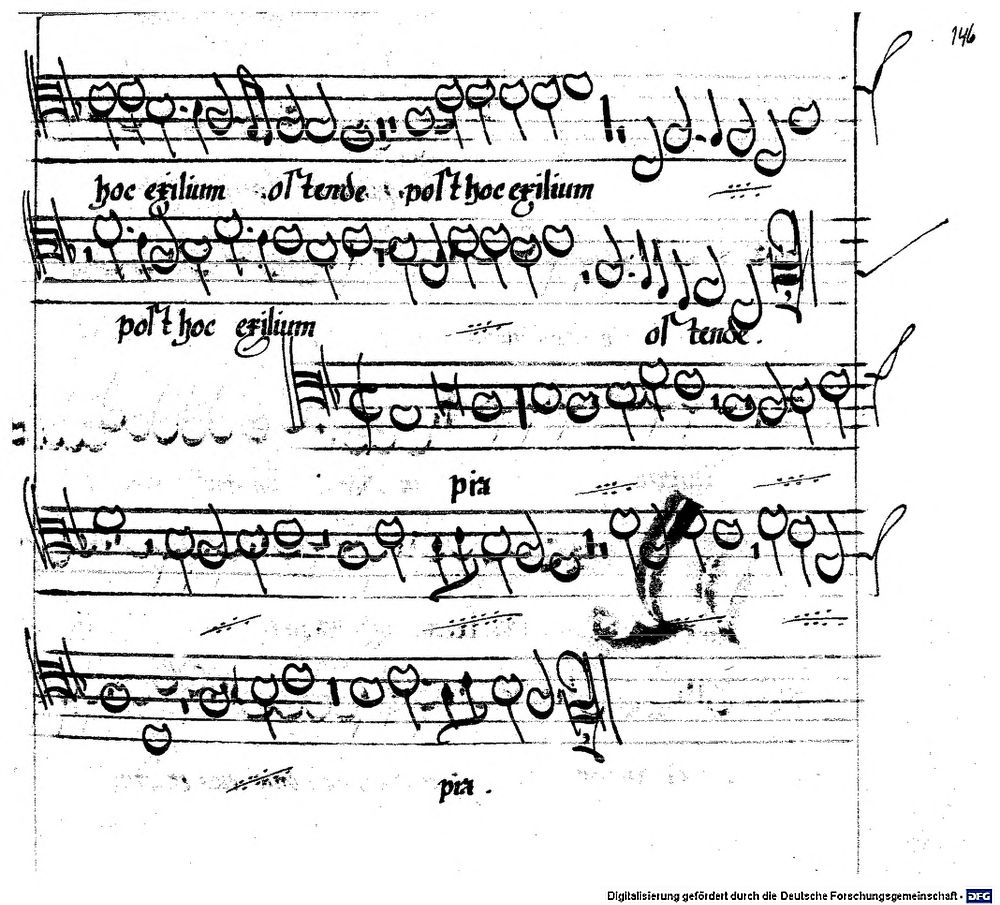 146
hoc exilium ostende post hoc exilium
post hoc exilium ostende.
pia
pia.
Digitalisierung gefördert durch die Deutsche Forschungsgemeinschaft - DFG